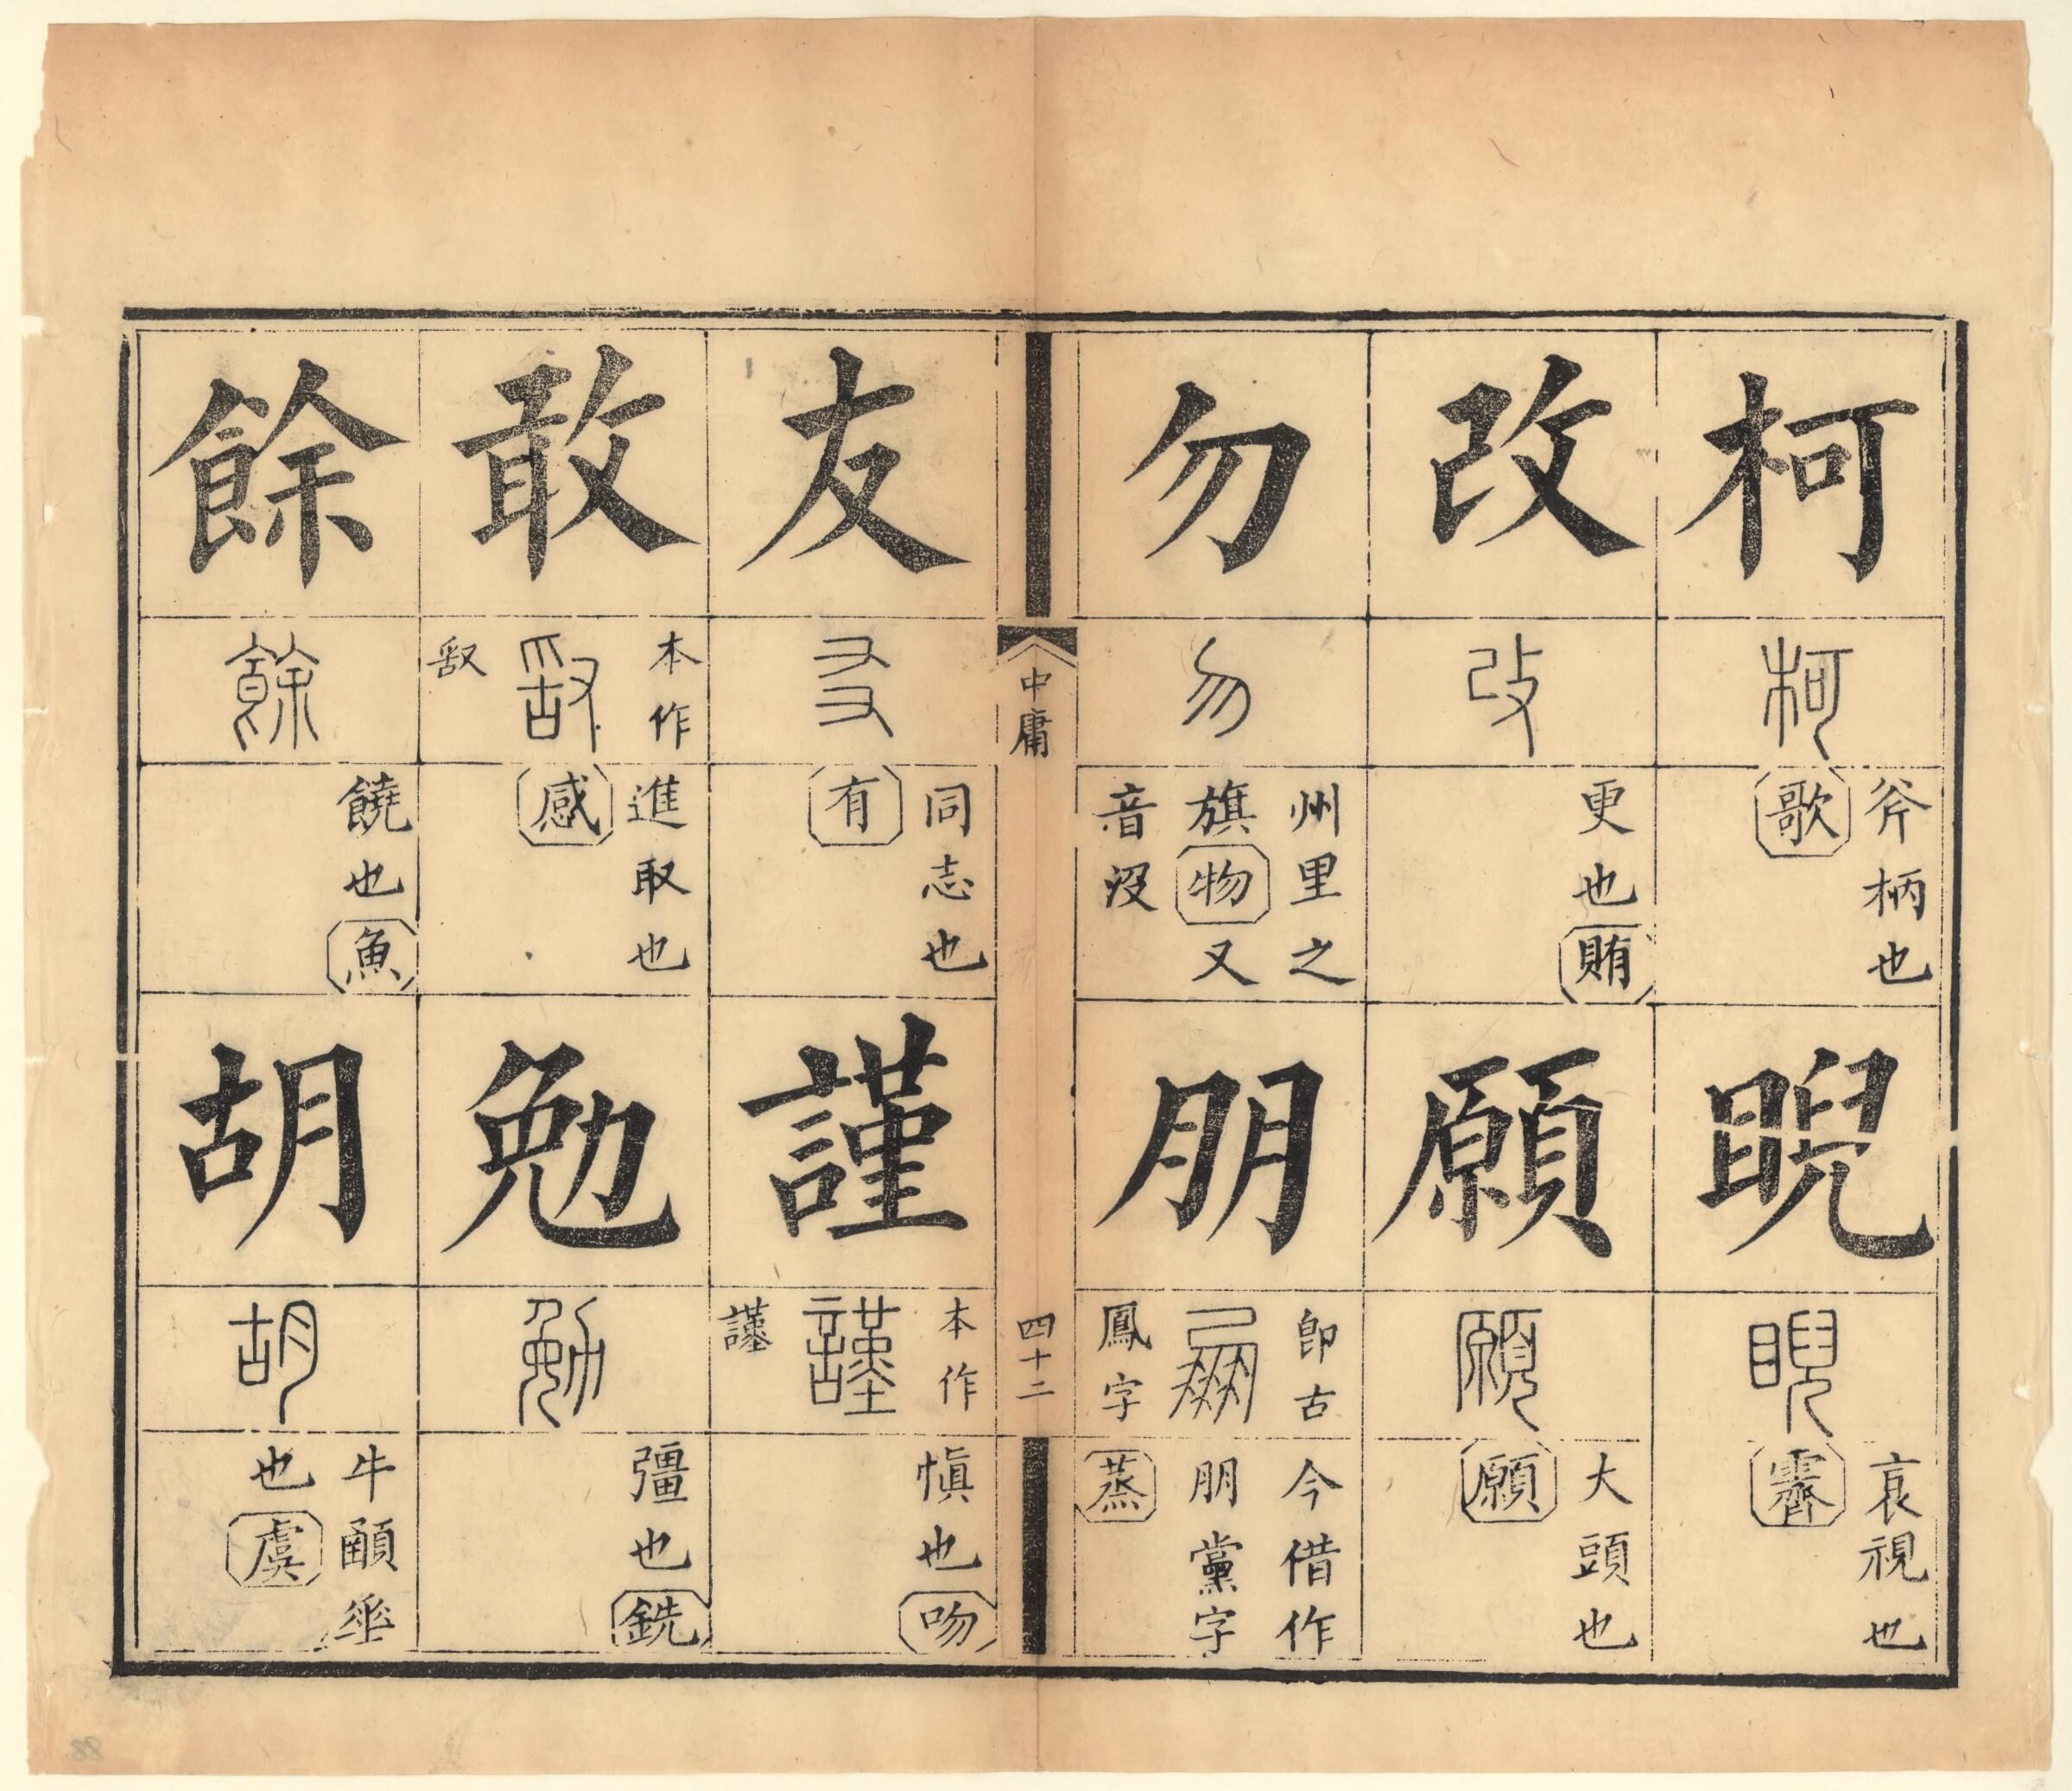 柯
柯
斧柄也
歌
睨
睨
衺視也
霽
改
改
更也賄
願
願
大頭也
願
勿
勿
州里之
旗物又
音沒
朋
即古
鳳字
今借作
朋黨字
蒸
中庸
四十二
友
友
同志也
有
謹
本作
謹
慎也吻
敢
本作
進取也
感
勉
勉
彊也銑
餘
餘
饒也魚
胡
胡
牛顄垂
也虞